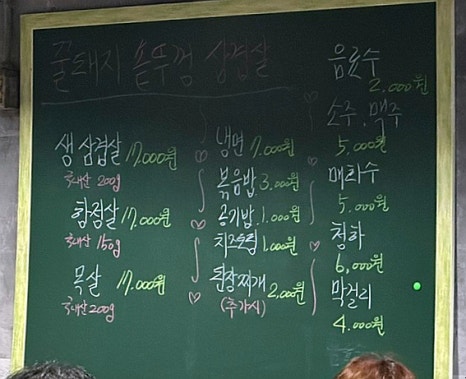 줄돼지 솥뚜껑 삼겹살
생 삼겹살 17,000원
국내산 200g
항정살 17,000원
국내산 150g
목살 17,000원
국내산 200g
냉면 7,000원
볶음밥 3,000원
공기밥 1,000원
치즈토핑 1,000원
된장찌개 2,000원
(추가시)
음료수
2,000원
소주, 맥주
5,000원
매화수
5,000원
청하
6,000원
막걸리
4,000원